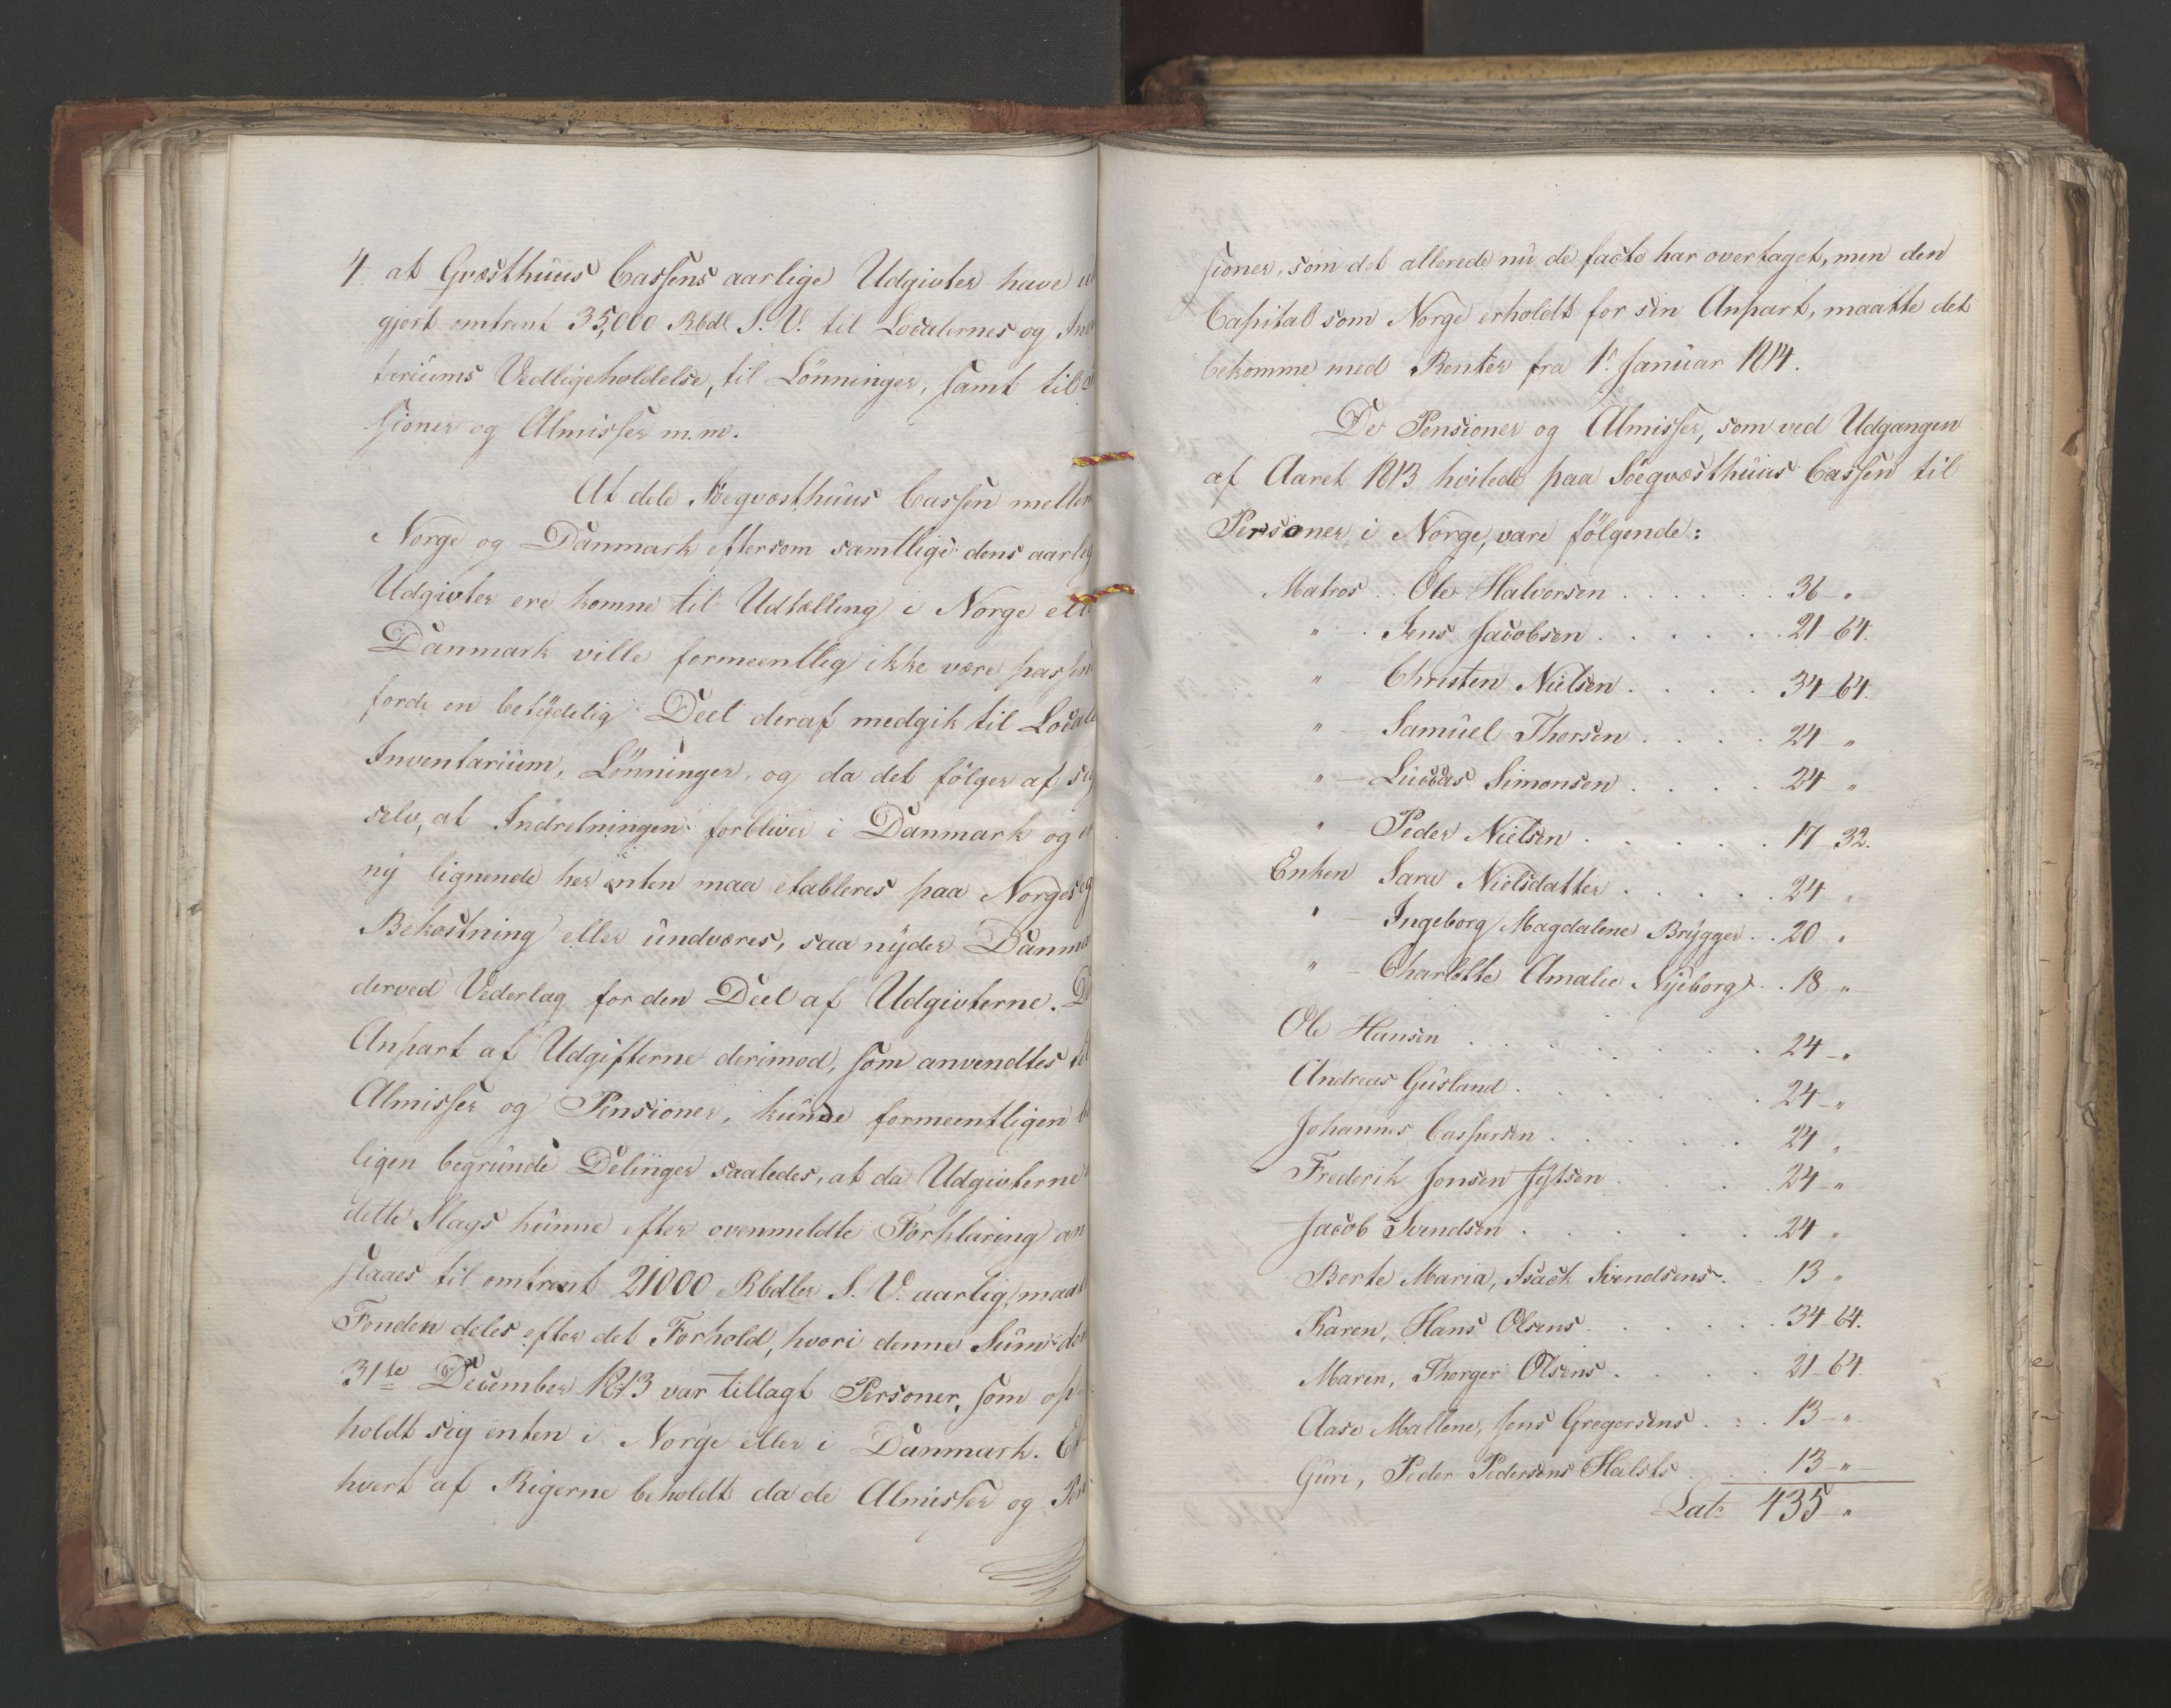 4. at Gvæsthuus Cassens aarlige Udgivter have
gjort omtrent 35,000 Rbdl S. V. til Localernes og
tariums Vedligeholdelse, til Lönninger, samt til
sioner og Almisser m. m.
At dele Söegvæsthuus Cassen mellem
Norge og Danmark eftersom samtlige dens aarlig
Udgivter ere komne til Udtælling i Norge
Danmark ville formeentlig ikke være
fordi en betydelig Deel deraf medgik til
Inventarium, Lönninger, og da det fölger af
selv, at Indretningen forbliver i Danmark og
ny lignende her enten maa etableres paa Norges
Bekostning eller undværes, saa nyder
derved Vederlag for den Deel af Udgivterne.
Anpart af Udgifterne derimod, som anvendtes
Almisser og Pensioner, kunde formeentligen
ligen begrunde Delinger saaledes, at da Udgivterne
dette Slags kunne efter ovenmeldte Forklaring an
slaaes til omtrent 21000 Rbdler S. V. aarlig,
Fonden deles efter det Forhold, hvori denne Sum
31te December 1813 var tillagt Personer, som op
holdt sig enten i Norge eller i Danmark.
hvert af Rigerne beholdt da de Almisser og
sioner, som det allerede nu de facto har overtaget, men den
Capital som Norge erholdt for sin Anpart, maatte det
bekomme med Renter fra 1. Januar 1814.
De Pensioner og Almisser, som ved Udgangen
af Aaret 1813 hvilede paa Söegvæsthuus Cassen til
Personer i Norge, vare fölgende:
Matros . . Ole Halvorsen . . . . . . 36 - "
" - . Jens Jacobsen . . . . . . 21 - 64.
" - Christen Nielsen . . . . 34 - 64.
" - Samuel Thorsen . . . . 24 - "
" - Luccas Simonsen . . . . 24 "
" - Peder Nielsen . . . . . . 17 - 32.
Enken Sara Nielsdatter . . . . . 24 "
" - Ingeborg Magdalene Brygger . . 20 "
" - Charlotte Amalie Nyeborg . . 18 "
Ole Hansen . . . . . . . 24 - "
Andreas Gusland . . . . . . . 24 - "
Johannes Caspersen . . . . . . 24 "
Frederik Jonsen . . . 24 - "
Jacob Svendsen . . . . . . 24 "
Berte Maria, Isack Svendsens . . 13 "
Karen, Hans Olsens . . . . . 34 - 64.
Maren, Thorger Olsens . . . . . 21 - 64.
Aase Mallene, Jens Gregersens . . . 13 - "
Guri, Peder Pedersens Halsts . . . 13 - "
Lats 435 - "